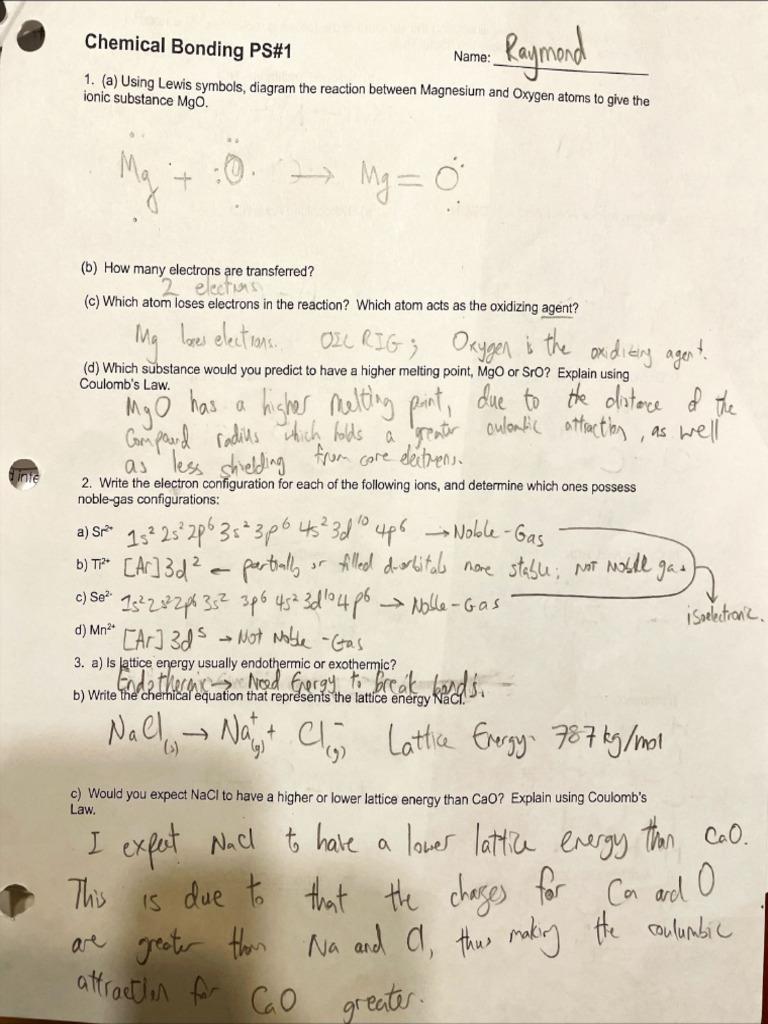 Chemical Bonding PS#1
Name: Raymond
1. (a) Using Lewis symbols, diagram the reaction between Magnesium and Oxygen atoms to give the
ionic substance MgO.
Mg + :O. → Mg=O
(b) How many electrons are transferred?
2 electrons
(c) Which atom loses electrons in the reaction? Which atom acts as the oxidizing agent?
Mg loses electrons. OIL RIG; Oxygen is the oxidizing agent.
(d) Which substance would you predict to have a higher melting point, MgO or SrO? Explain using
Coulomb's Law.
MgO has a higher melting point, due to the distance of the
Compound radius which holds a greater oulombic attraction, as well
as less shielding from core electrons.
2. Write the electron configuration for each of the following ions, and determine which ones possess
noble-gas configurations:
a) Sr²⁺ 1s² 2s² 2p⁶ 3s² 3p⁶ 4s² 3d¹⁰ 4p⁶ → Noble-Gas
b) Ti²⁺ [Ar] 3d² ← partially or filled d-orbitals more stable; NOT Noble gas
c) Se²⁻ 1s² 2s² 2p⁶ 3s² 3p⁶ 4s² 3d¹⁰ 4p⁶ → Noble-Gas
isoelectronic.
d) Mn²⁺ [Ar] 3d⁵ → Not Noble-Gas
3. a) Is lattice energy usually endothermic or exothermic?
Endothermic → Need Energy to break bonds.
b) Write the chemical equation that represents the lattice energy NaCl.
NaCl(s) → Na⁺(g) + Cl⁻(g) Lattice Energy- 787 kg/mol
c) Would you expect NaCl to have a higher or lower lattice energy than CaO? Explain using Coulomb's
Law.
I expect NaCl to have a lower lattice energy than CaO.
This is due to that the charges for Ca and O
are greater than Na and Cl, thus making the coulumbic
attraction for CaO greater.